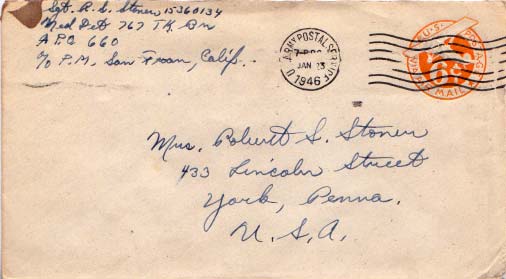 Sgt. R. S. Stoner 15360134
Med Det 767 TK Bn
A.P.O 660
c/o P.M. San Fran, Calif.
U.S. ARMY POSTAL SERVICE
JAN 23
1946
U.S. POSTAGE
6¢
VIA AIR MAIL
Mrs. Robert S. Stoner
433 Lincoln Street
York, Penna.
U.S.A.